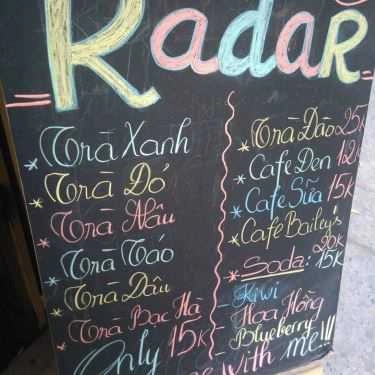 Radar
* Trà Xanh
* Trà Đỏ
* Trà Nâu
* Trà Táo
* Trà Dâu
* Trà Bạc Hà
Only 15K
* Trà Đào 25K
* Cafe Đen 12K
* Cafe Sữa 15K
* Cafe Bailey's 20K
* Soda: 15K
Kiwi
- Hoa Hồng
Blueberry
with me!!!